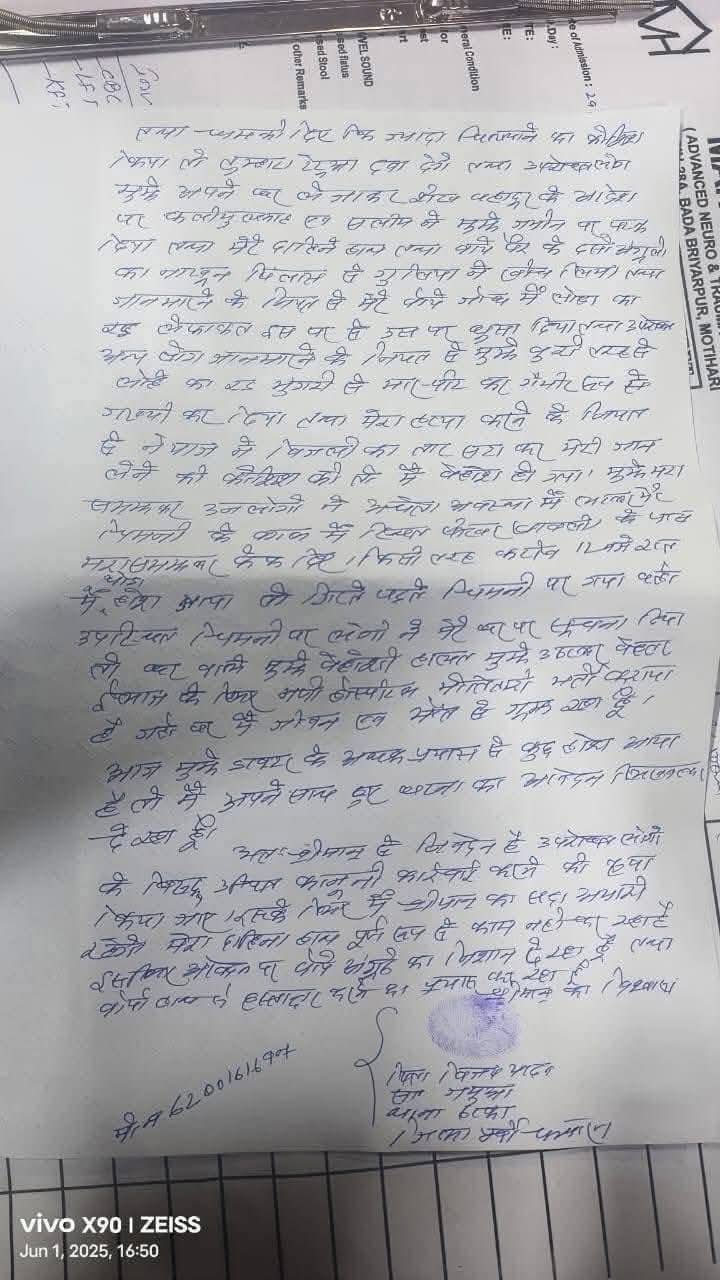 of Admission : 29
.Day :
TE:
RE:
neral Condition
or
est
rt
VEL SOUND
sed flatus
sed Stool
other Remarks
CBC
LFT
KFT
(ADVANCED NEURO & TRAUM
28A, BADA BRIYARPUR, MOTIHARI
तथा धमकी दिए कि ज्यादा चिल्लाने का कोशिश
किया तो तुम्हारा टेटुआ दबा देंगे तथा उपरोक्त लोग
मुझे अपने घर ले जाकर शेख बहादुर के आदेश
पर कलीमुल्लाह एवं सलीम ने मुझे जमीन पर पटक
दिया तथा मेरे दाहिने हाथ तथा बांये पैर के दसो अंगुली
का नाखून पिलास से खींच लिया तथा
जान मारने के नियत से मेरे बांये में लोहा का
रड उस पर दिया तथा उपरोक्त
अन्य लोग जान मारने के नियत से मुझे बुरी तरह से
लोहे का रड मुंगरी से मार-पीट कर गंभीर रूप से
जख्मी कर दिया तथा मेरा हत्या करने के नियत
से में बिजली का तार सटा कर मेरी जान
लेने की कोशिश की तो मैं बेहोश हो गया। मुझे मरा
समझकर उन लोगों ने अवस्था में
चिमनी के में स्थित के पास
मरा समझ कर फेंक दिए। किसी तरह करीब रात
में होश आया तो गिरते पड़ते चिमनी पर गया वहां
उपस्थित चिमनी पर लोगों ने मेरे घर पर सूचना दिया
तो घर वाले मुझे बेहोशी हालत मुझे उठाकर बेहतर
ईलाज के लिए हॉस्पीटल मोतिहारी भर्ती कराया
है जहां पर मैं जीवन एवं मौत से जूझ रहा हूँ।
आज मुझे डाक्टर के अथक प्रयास से कुछ होश आया
है तो मैं अपने साथ हुए घटना का आवेदन लिखवाकर
दे रहा हूँ।
अतः श्रीमान् से निवेदन है उपरोक्त लोगों
के विरुद्ध उचित कानूनी कार्रवाई करने की कृपा
किया जाए। इसके लिए मैं श्रीमान का सदा आभारी
रहूँगा मेरा दाहिना हाथ पूर्ण रूप से काम नहीं कर रहा है
इसलिए आवेदन पर बांये अंगूठे का निशान दे रहा हूँ तथा
बांया हाथ से हस्ताक्षर करने का प्रयास कर रहा हूँ।
का विश्वासी
पिता विजय यादव
सा०
थाना
जिला पूर्वी चम्पारण
मो० न० 6200161690
vivo X90 | ZEISS
Jun 1, 2025, 16:50